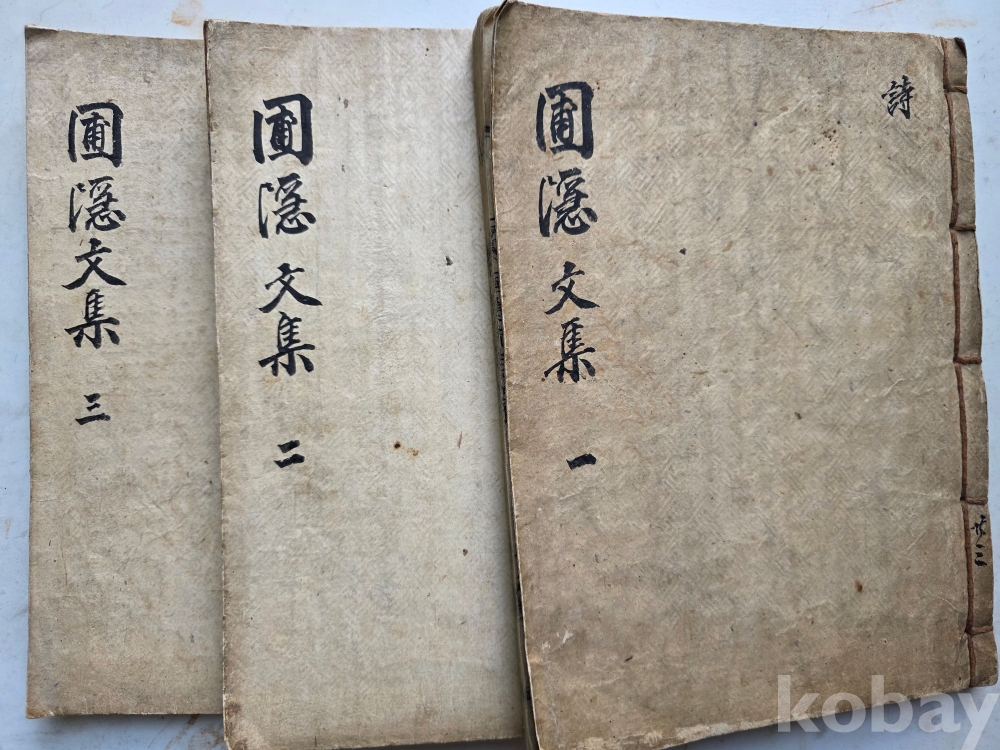 圃隱文集 三
圃隱文集 二
圃隱文集 一
詩
共三
kobay